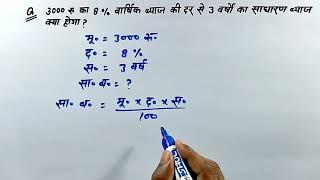 Q. 3000 रु का 8% वार्षिक ब्याज की दर से 3 वर्षों का साधारण ब्याज
क्या होगा ?
मू० = 3000 रु०
द० = 8%
स० = 3 वर्ष
सा० ब० = ?
सा० ब० = मू० x द० x स०
100